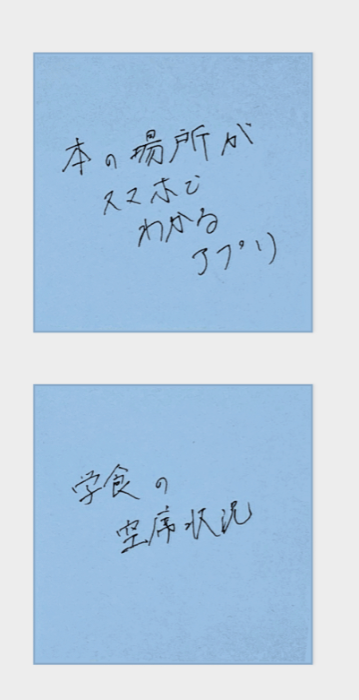 本の場所が
スマホで
わかる
アプリ
学食の
空席状況